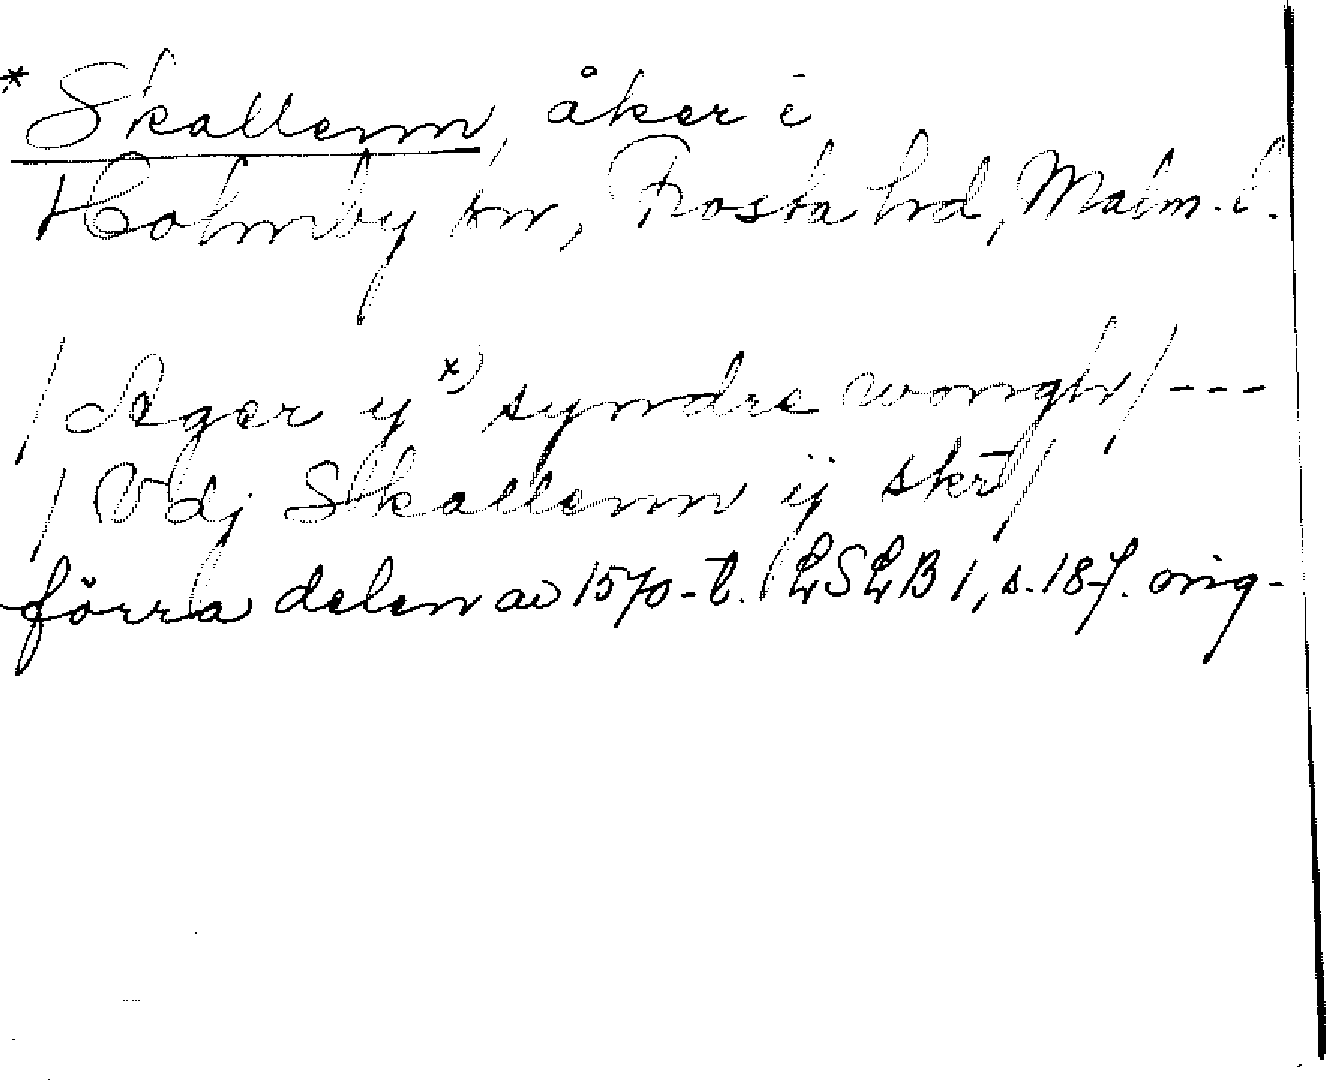 * Skallenn, åker i
Holmby sn, Frosta hd, Malm. l.
/ Ager y x) syndre wongh / ---
/ Vdj Skallenn ij skr /
förra delen av 1570-t. (LSLB 1, s. 187. orig-